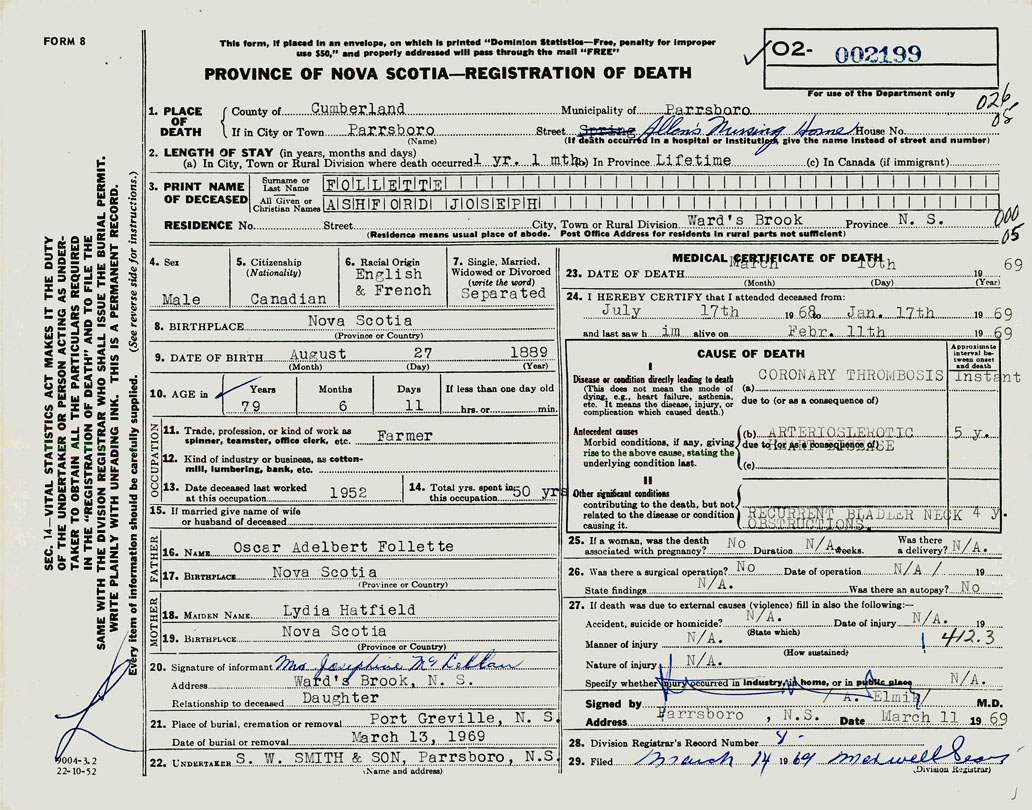 FORM 8
This form, if placed in an envelope, on which is printed "Dominion Statistics—Free, penalty for improper
use $50," and properly addressed will pass through the mail "FREE"
PROVINCE OF NOVA SCOTIA—REGISTRATION OF DEATH
O2- 002199
For use of the Department only
026
08
1. PLACE OF DEATH
County of Cumberland Municipality of Parrsboro
If in City or Town Parrsboro Street Spring Allen's Nursing Home House No.
(Name) (If death occurred in a hospital or institution, give the name instead of street and number)
2. LENGTH OF STAY (in years, months and days)
(a) In City, Town or Rural Division where death occurred 1 yr. 1 mth. (b) In Province Lifetime (c) In Canada (if immigrant)
3. PRINT NAME OF DECEASED
Surname or Last Name FOLLETTE
All Given or Christian Names ASHFORD JOSEPH
RESIDENCE No. Street City, Town or Rural Division Ward's Brook Province N. S.
(Residence means usual place of abode. Post Office Address for residents in rural parts not sufficient)
000
05
4. Sex
Male
5. Citizenship
(Nationality)
Canadian
6. Racial Origin
English
& French
7. Single, Married,
Widowed or Divorced
(write the word)
Separated
8. BIRTHPLACE Nova Scotia
(Province or Country)
9. DATE OF BIRTH August 27 1889
(Month) (Day) (Year)
10. AGE in Years Months Days If less than one day old
79 6 11 hrs. or min.
OCCUPATION
11. Trade, profession, or kind of work as
spinner, teamster, office clerk, etc. Farmer
12. Kind of industry or business, as cotton-
mill, lumbering, bank, etc.
13. Date deceased last worked
at this occupation 1952
14. Total yrs. spent in
this occupation 50 yrs
15. If married give name of wife
or husband of deceased
FATHER
16. NAME Oscar Adelbert Follette
17. BIRTHPLACE Nova Scotia
(Province or Country)
MOTHER
18. MAIDEN NAME Lydia Hatfield
19. BIRTHPLACE Nova Scotia
(Province or Country)
20. Signature of informant Mrs Josephine McLellan
Address Ward's Brook, N. S.
Relationship to deceased Daughter
21. Place of burial, cremation or removal Port Greville, N. S.
Date of burial or removal March 13, 1969
22. UNDERTAKER S. W. SMITH & SON, Parrsboro, N.S.
(Name and address)
MEDICAL CERTIFICATE OF DEATH
23. DATE OF DEATH March 10th 19 69
(Month) (Day) (Year)
24. I HEREBY CERTIFY that I attended deceased from:
July 17th 1968 to Jan. 17th 1969
and last saw h im alive on Febr. 11th 1969
CAUSE OF DEATH
Approximate
interval be-
tween onset
and death
I
Disease or condition directly leading to death
(This does not mean the mode of
dying, e.g., heart failure, asthenia,
etc. It means the disease, injury, or
complication which caused death.)
(a) CORONARY THROMBOSIS Instant
due to (or as a consequence of)
Antecedent causes
Morbid conditions, if any, giving
rise to the above cause, stating the
underlying condition last.
(b) ARTERIOSLEROTIC 5 y.
due to (or as a consequence of)
HEART DISEASE
(c)
II
Other significant conditions
contributing to the death, but not
related to the disease or condition
causing it.
RECURRENT BLADLER NECK 4 y.
OBSTRUCTIONS.
25. If a woman, was the death
associated with pregnancy? No Duration N/A. Weeks. Was there
a delivery? N/A.
26. Was there a surgical operation? No Date of operation N/A / 19
State findings N/A. Was there an autopsy? No
27. If death was due to external causes (violence) fill in also the following:—
Accident, suicide or homicide? N/A. Date of injury N/A. 19
(State which)
Manner of injury N/A. 412.3
(How sustained)
Nature of injury N/A.
Specify whether injury occurred in industry, in home, or in public place N/A.
Signed by A. Elmik M.D.
Address Parrsboro , N.S. Date March 11 1969
28. Division Registrar's Record Number 4
29. Filed March 14 1969 Maxwell
(Division Registrar)
SEC. 14—VITAL STATISTICS ACT MAKES IT THE DUTY
OF THE UNDERTAKER OR PERSON ACTING AS UNDER-
TAKER TO OBTAIN ALL THE PARTICULARS REQUIRED
IN THE "REGISTRATION OF DEATH" AND TO FILE THE
SAME WITH THE DIVISION REGISTRAR WHO SHALL ISSUE THE BURIAL PERMIT.
WRITE PLAINLY WITH UNFADING INK. THIS IS A PERMANENT RECORD.
Every item of information should be carefully supplied. (See reverse side for instructions.)
9004-3.2
22-10-52